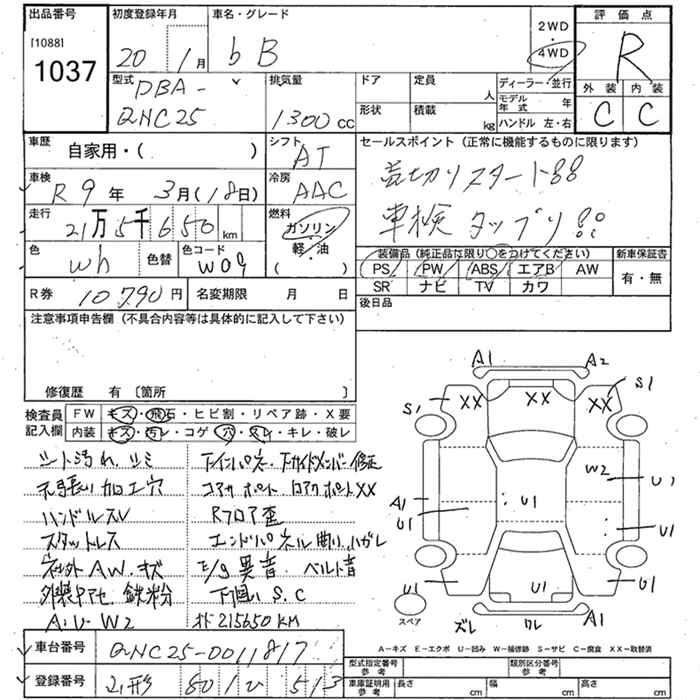 出品番号
[1088]
1037
初度登録年月
20年 1月
車名・グレード
bB
2WD
・
4WD
評価点
R
外装 内装
C C
型式
DBA-
QNC25
排気量
1300cc
ドア
定員
人
形状
積載
kg
ディーラー・並行
モデル年式 年
ハンドル 左・右
車歴
自家用・( )
シフト
AT
車検
R9年 3月(18日)
冷房
AAC
走行
21万5千650km
燃料
ガソリン
軽・油
( )
色
wh
色替
色コード
W09
セールスポイント (正常に機能するものに限ります)
荒切りスタート!!
車検タップリ!!
装備品 (純正品に限り○をつけてください)
新車保証書
PS PW ABS エアB AW
有・無
SR ナビ TV カワ
R券 10790円
名変期限 月 日
後日品
注意事項申告欄 (不具合内容等は具体的に記入して下さい)
修復歴 有 〔箇所 〕
検査員
記入欄
FW キズ・飛石・ヒビ割・リペア跡・X要
内装 キズ・汚レ・コゲ・穴・スレ・キレ・破レ
シート汚れ、シミ
加工穴
ハンドルスレ
スタットレス
AW.キズ
鉄粉
A.U.W2
コアサポート ロアサポートXX
Rフロア歪
エンドパネル曲り、ハガレ
E/g異音 ベルト音
下廻りS.C
オド215650KM
A1 A2
S1 XX XX XX S1
W2 U1
A1
U1 U1 U1
U1 U1 U1
スペア
ズレ ワレ A1
A-キズ E-エクボ U-凹み W-補修跡 S-サビ C-腐食 XX-取替済
車台番号
QNC25-0011817
登録番号
型式指定番号
参考
類別区分番号
参考
車庫証明用
参考
長さ cm
幅 cm
高さ cm